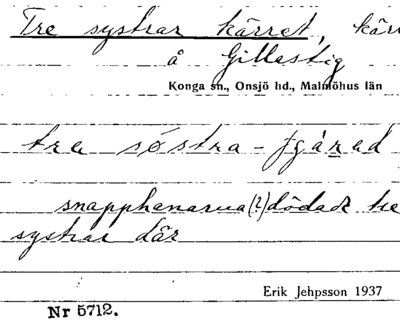 Tre systrar kärret, kärr
å Gillastig
Konga sn., Onsjö hd., Malmöhus län
tre söstra - fgärad
snapphanarna (?) dödade tre
systrar där
Erik Jehpsson 1937
Nr 5712.